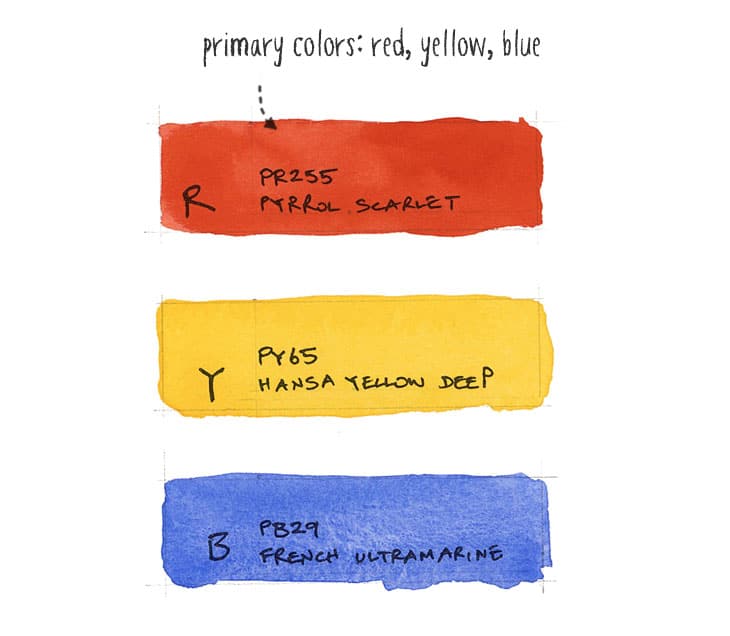 primary colors: red, yellow, blue
PR255
R PYRROL SCARLET
PY65
Y HANSA YELLOW DEEP
PB29
B FRENCH ULTRAMARINE